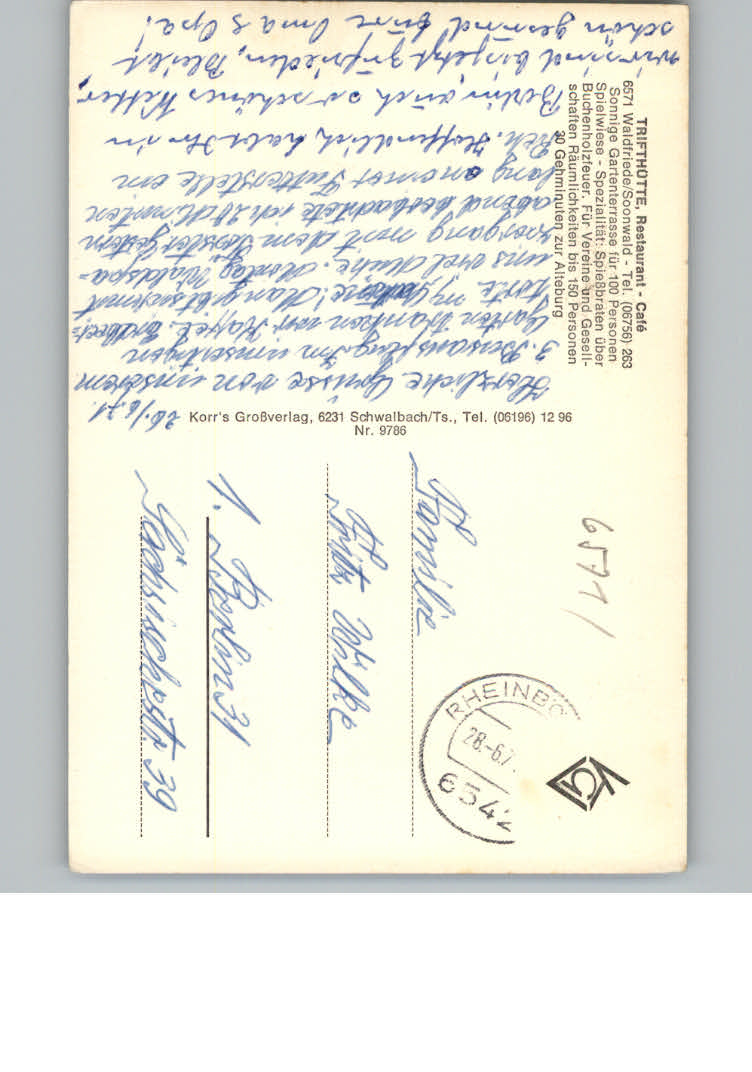 TRIFTHÜTTE, Restaurant - Café
6571 Waldfriede/Soonwald - Tel. (06756) 263
Sonnige Gartenterrasse für 100 Personen
Spielwiese - Spezialität: Spießbraten über
Buchenholzfeuer. Für Vereine und Gesell-
schaften Räumlichkeiten bis 150 Personen
30 Gehminuten zur Alteburg
26./6.71.
Herzliche Grüsse von unserem
3. Busausflug. Im
Garten tranken wir Kaffee, Erdbeer-
torte m. Sahne! Man gibt sich mit
uns viel Mühe. Montag Waldspa-
ziergang mit dem Förster, gestern
abend beobachtete ich 2 Stunden
lang an einer Futterstelle ein
Reh. Hoffentlich habt Ihr in
Berlin auch so schönes Wetter,
wir sind bis jetzt zufrieden. Bleibt
schön gesund Eure Oma & Opa!
Korr's Großverlag, 6231 Schwalbach/Ts., Tel. (06196) 12 96
Nr. 9786
6571
RHEINBÖ
28.-6.7
6542
Familie
Fritz Wilke
1. Berlin 31
Sächsischestr. 39